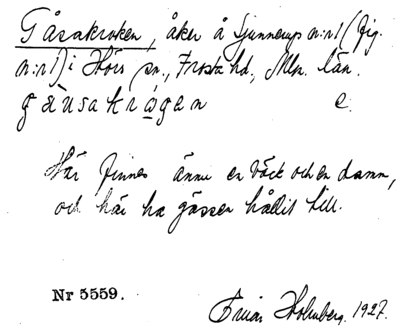 Gåsakroken, åker å Ljunnerup n:r 1 (fig.
n:r 1) i Hörs sn., Frosta hd., Mlm. län.
e.
Här finnes ännu en bäck och en damm,
och här ha gässen hållit till.
Nr 5559.
Einar Holmberg. 1927.